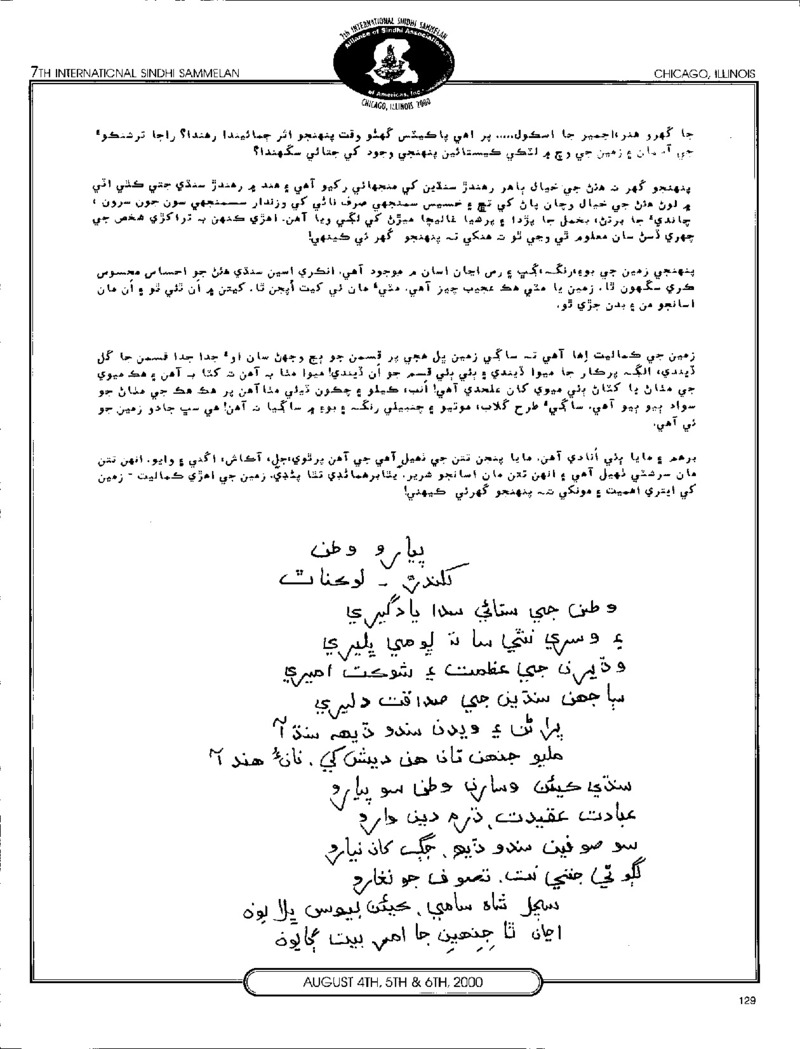 7TH INTERNATIONAL SINDHI SAMMELAN
7th INTERNATIONAL SINDHI SAMMELAN
Alliance of Sindhi Associations
of Americas, Inc.
CHICAGO, ILLINOIS 2000
CHICAGO, ILLINOIS
جا گهرو هنر،اجمير جا اسڪول..... پر اهي پاڪيٽس گهڻو وقت پنهنجو اثر ڄمائيندا رهندا؟ راجا ترشنڪوءَ
جي آسمان ۽ زمين جي وچ ۾ لٽڪي ڪيستائين پنهنجي وجود کي جتائي سگهندا؟
پنهنجو گهر نہ هئڻ جي خيال ٻاهر رهندڙ سنڌين کي منجهائي رکيو آهي ۽ هند ۾ رهندڙ سنڌي جتي ڪٿي اٽي
۾ لوڻ هئڻ جي خيال وچان پاڻ کي تڇ ۽ خسيس سمنجهي صرف ناڻي کي وزندار سسمنجهي سون جون سرون ،
چانديءَ جا برتن، بخمل جا پڙدا ۽ پرشيا غاليچا ميڙڻ کي لڳي ويا آهن. اهڙي ڪنهن بہ تراڪڙي شخص جي
چهري ڏسڻ سان معلوم ٿي وڃي ٿو تہ هنکي تہ پنهنجو گهر ئي ڪينهي!
پنهنجي زمين جي بوءِ،رنگہ،ڳنڀ ۽ رس اڃان اسان ۾ موجود آهي. انڪري اسين سنڌي هئڻ جو احساس محسوس
ڪري سگهون ٿا. زمين يا مٽي هڪ عجيب چيز آهي. مٽيءَ مان ئي کيت اُپجن ٿا. کيتن ۾ اَن ٿئي ٿو ۽ اَن مان
اسانجو من ۽ بدن جڙي ٿو.
زمين جي ڪماليت اِها آهي تہ ساڳي زمين ڀل هجي پر قسمن جو ٻج وجهڻ سان اوءِ جدا جدا قسمن جا گل
ڏيندي، الڳہ پرڪار جا ميوا ڏيندي ۽ ٻئي ٻئي قسم جو اَن ڏيندي! ميوا مٺا بہ آهن تہ کٽا بہ آهن ۽ هڪ ميوي
جي مٺاڻ يا کٽاڻ ٻئي ميوي کان علحدي آهي! اُنب، ڪيلو ۽ چڪون ٽيئي مٺا آهن پر هڪ هڪ جي مٺاڻ جو
سواد ٻيو ٻيو آهي. ساڳيءَ طرح گلاب، موتيو ۽ چنبيلي رنگہ ۽ بوءِ ۾ ساڳيا نہ آهن! هي سڀ جادو زمين جو
ئي آهي.
برهم ۽ مايا ٻئي اُنادي آهن. مايا پنجن تتن جي ٺهيل آهي جي آهن پرٿوي،جل، آڪاش، اگني ۽ وايو. انهن تتن
مان سرشٽي ٺهيل آهي ۽ انهن تتن مان اسانجو شرير. يٿا برهمانڊي تٿا پنڊي. زمين جي اهڙي ڪماليت - زمين
کي ايتري اهميت ۽ مونکي تہ پنهنجو گهرئي ڪينهي!
پيارو وطن
لوڪناٿ
وطن جي ستائي سدا يادگيري
۽ وسري نٿي سا نہ ڀومي ڀليري
وڏيرن جي عظمت ۽ شوڪت اميري
سڀا جهن سنڌين جي صداقت دليري
پراڻن ۽ ويدن سندو ڏيهہ سنڌ آ
مليو جنهن تان هن ديش کي، نانءُ هند آ
سنڌي ڪيئن وسارن وطن سو پيارو
عبادت عقيدت، ڌرم دين وارو
سو صوفين سندو ڏيهہ، جڳ کان نيارو
ڳڙو ٿي جتي نت، تصوف جو نغارو
سچل شاهہ سامي، ڪيئن بيوس ڀلايون
اڃان ٿا جنهين جا امر بيت ڳايون
AUGUST 4TH, 5TH & 6TH, 2000
129